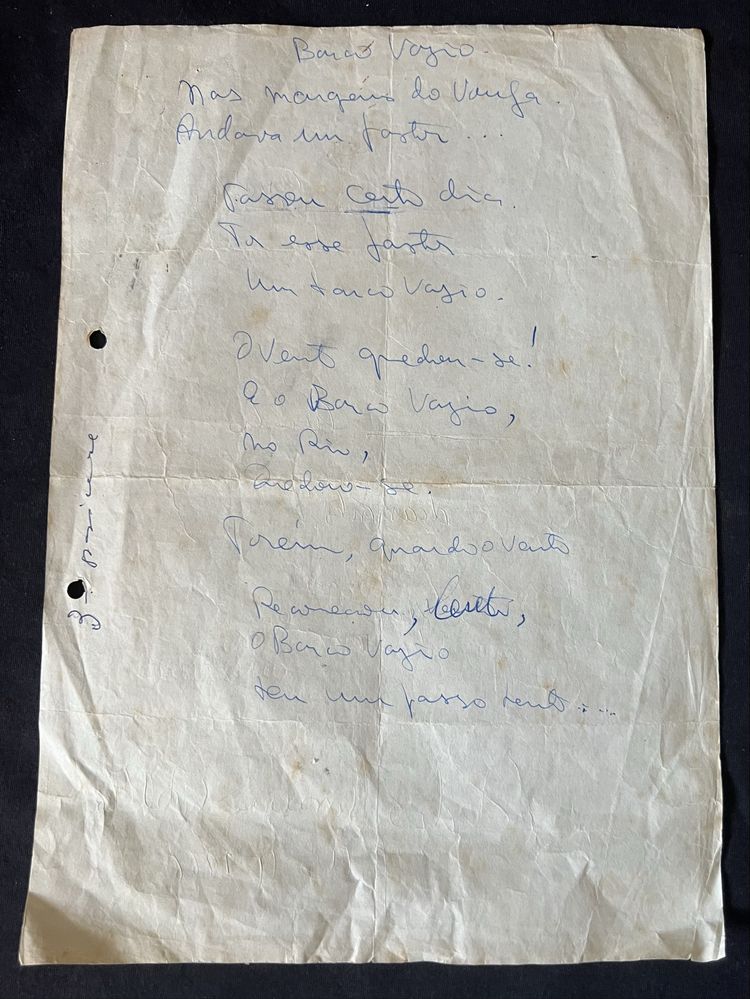 Barco Vazio.
Nas margens do Vouga.
Andava um pastor...
Passou certo dia.
Por esse pastor
Um barco Vazio.
O Vento quedou-se!
E o Barco Vazio,
no Rio,
Quedou-se.
Porém, quando o Vento
Recomeçou, lento,
O Barco Vazio
deu um passo lento....